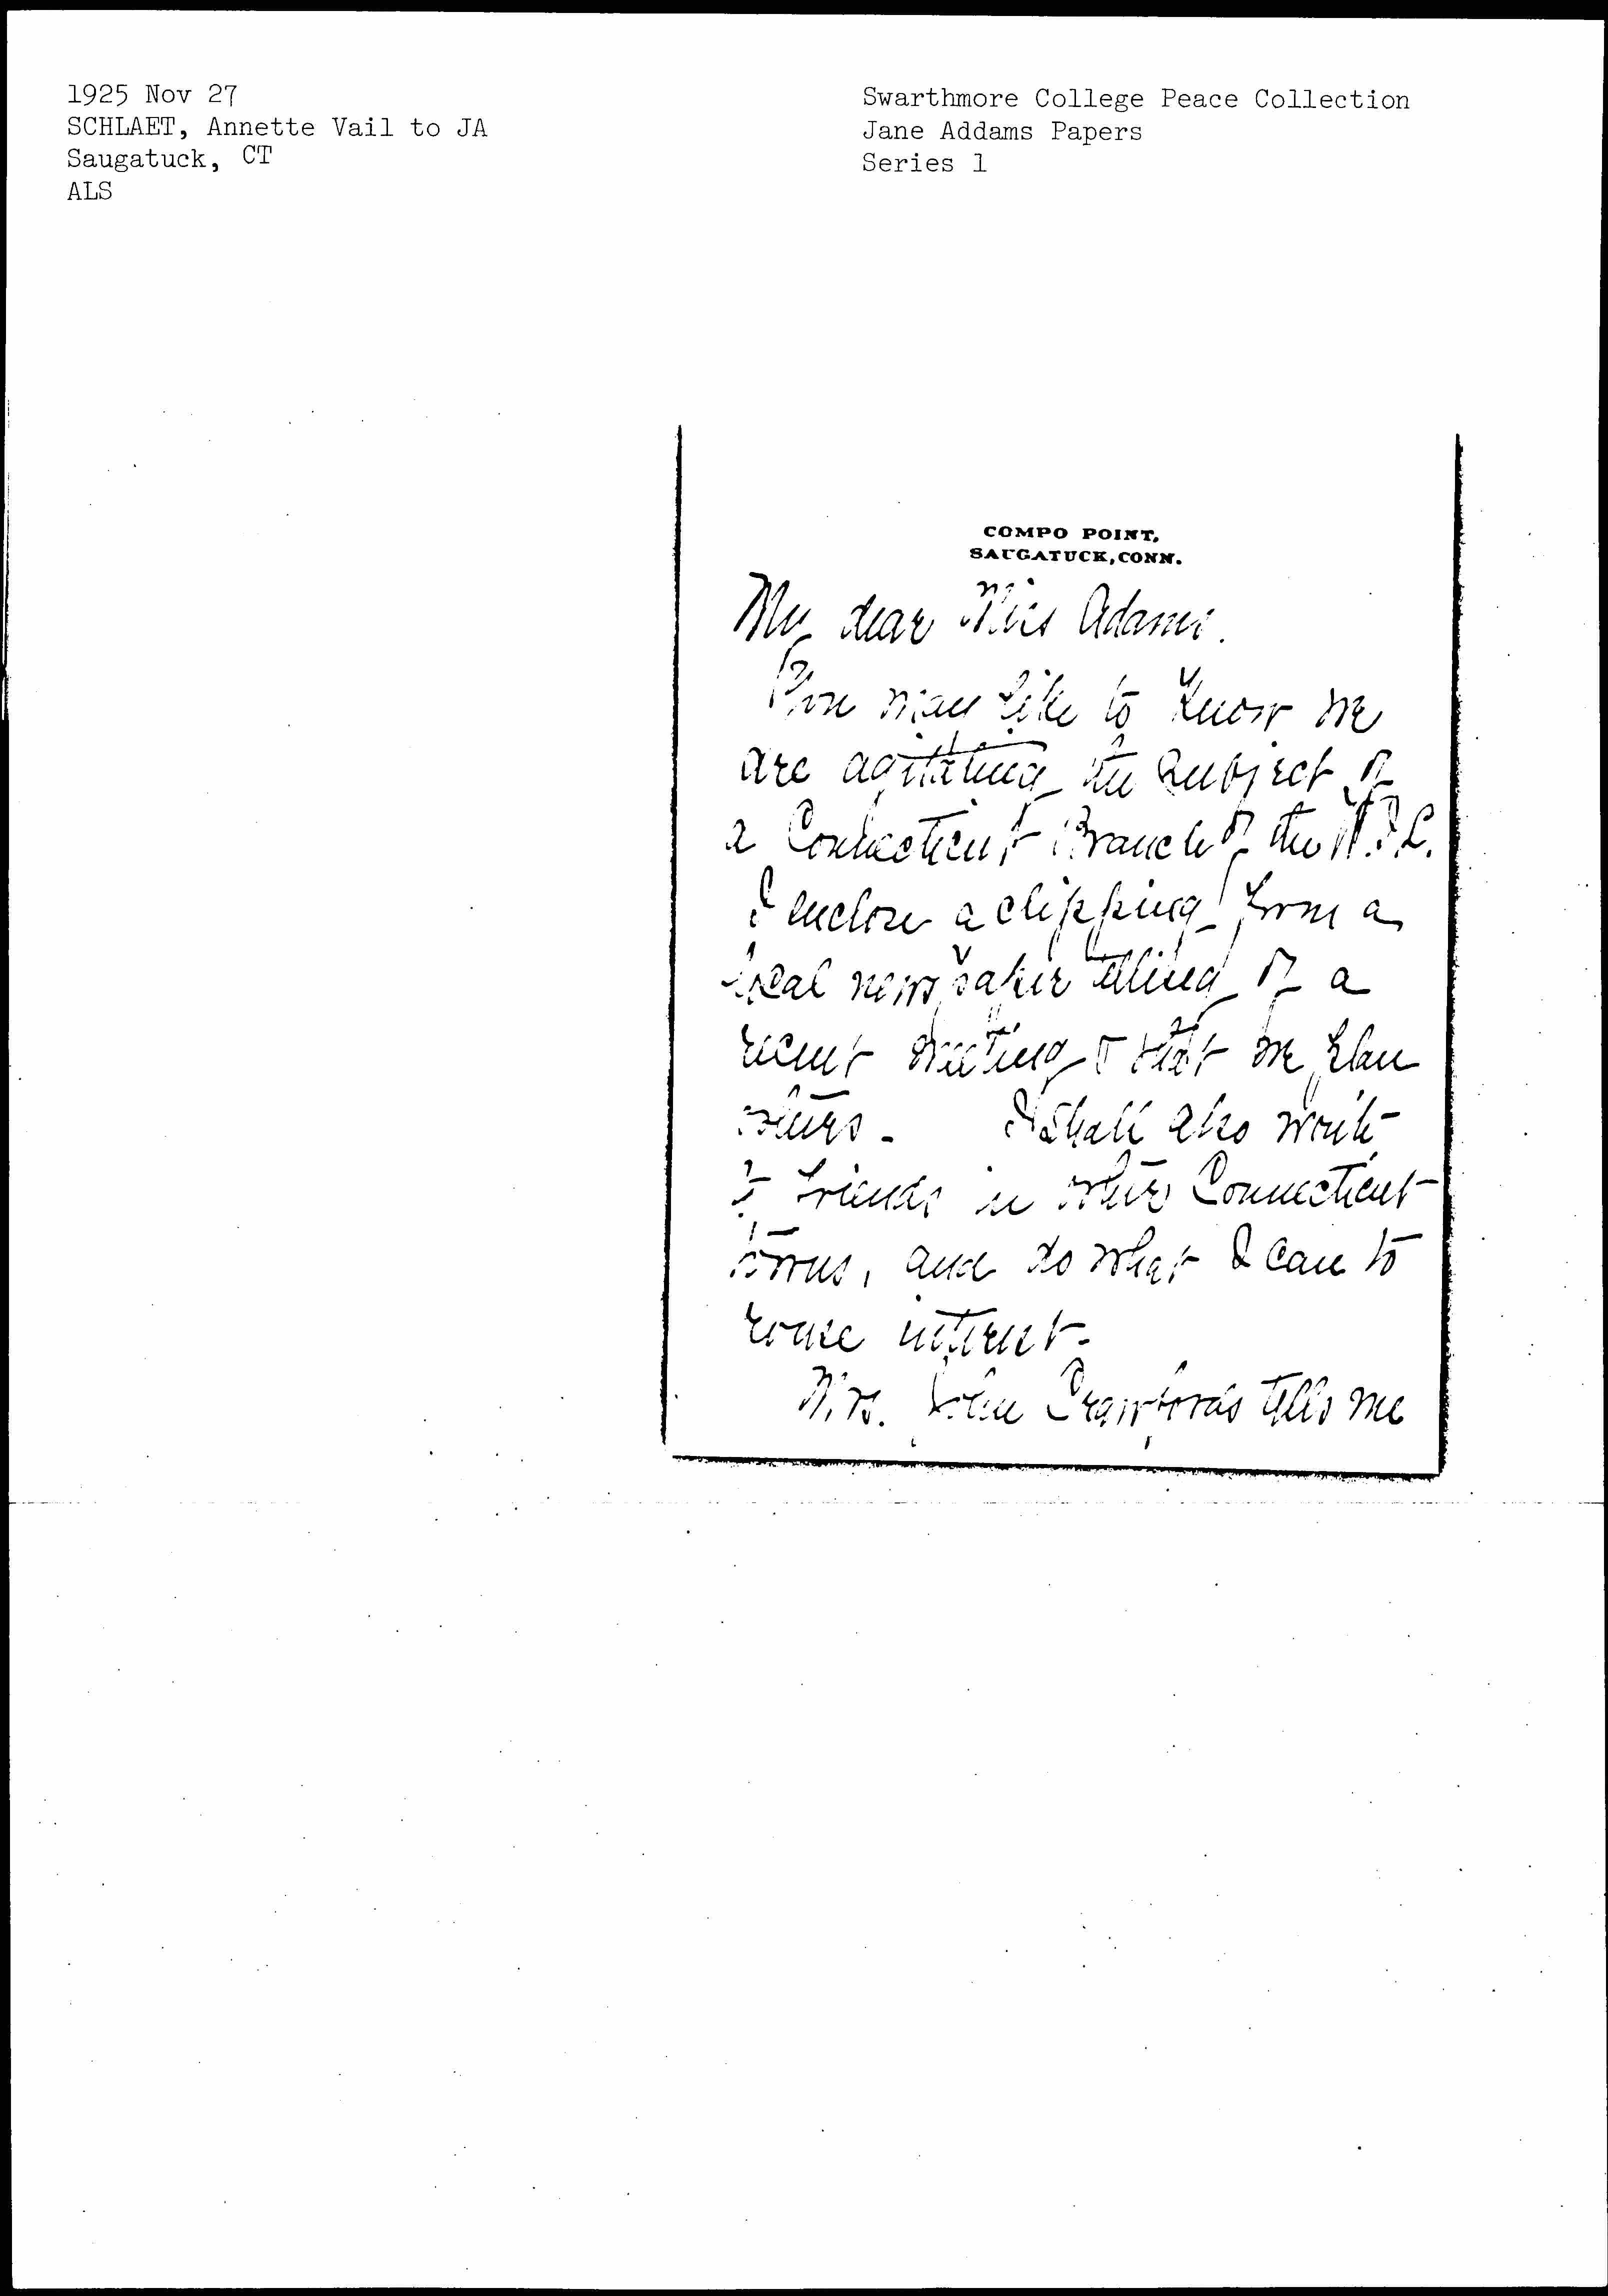 1925 Nov 27
SCHLAET, Annette Vail to JA
Saugatuck, CT
ALS
Swarthmore College Peace Collection
Jane Addams Papers
Series 1
COMPO POINT,
SAUGATUCK, CONN.
My dear Miss Adams.
You may like to know we
are agitating the subject of
a Connecticut Branch of the W.I.L.
I enclose a clipping from a
local newspaper telling of a
recent meeting & that we plan
others. I shall also write
to friends in other Connecticut
towns, and do what I can to
rouse interest.
Mrs. John Crawford tells me